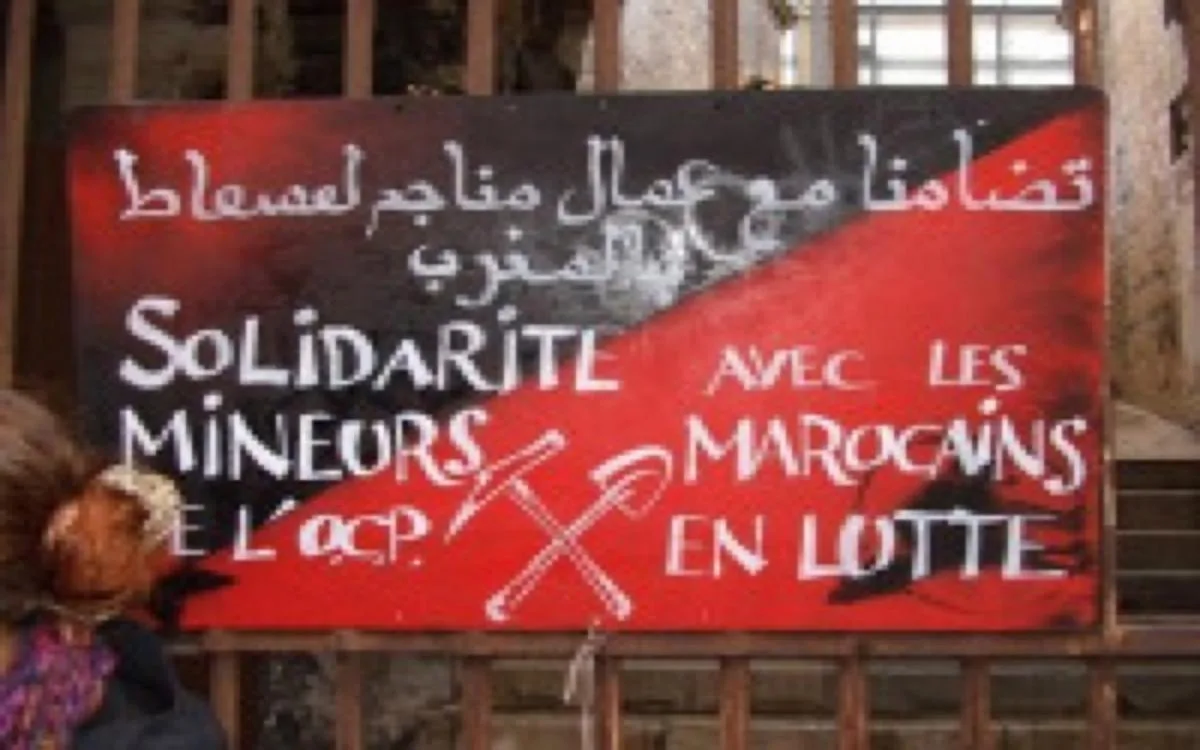 تضامنا مع عمال مناجم لفسفاط
بالمغرب
SOLiDARiTE AVEC LES
MiNEURS MAROCAiNS
E L'OCP. EN LUTTE